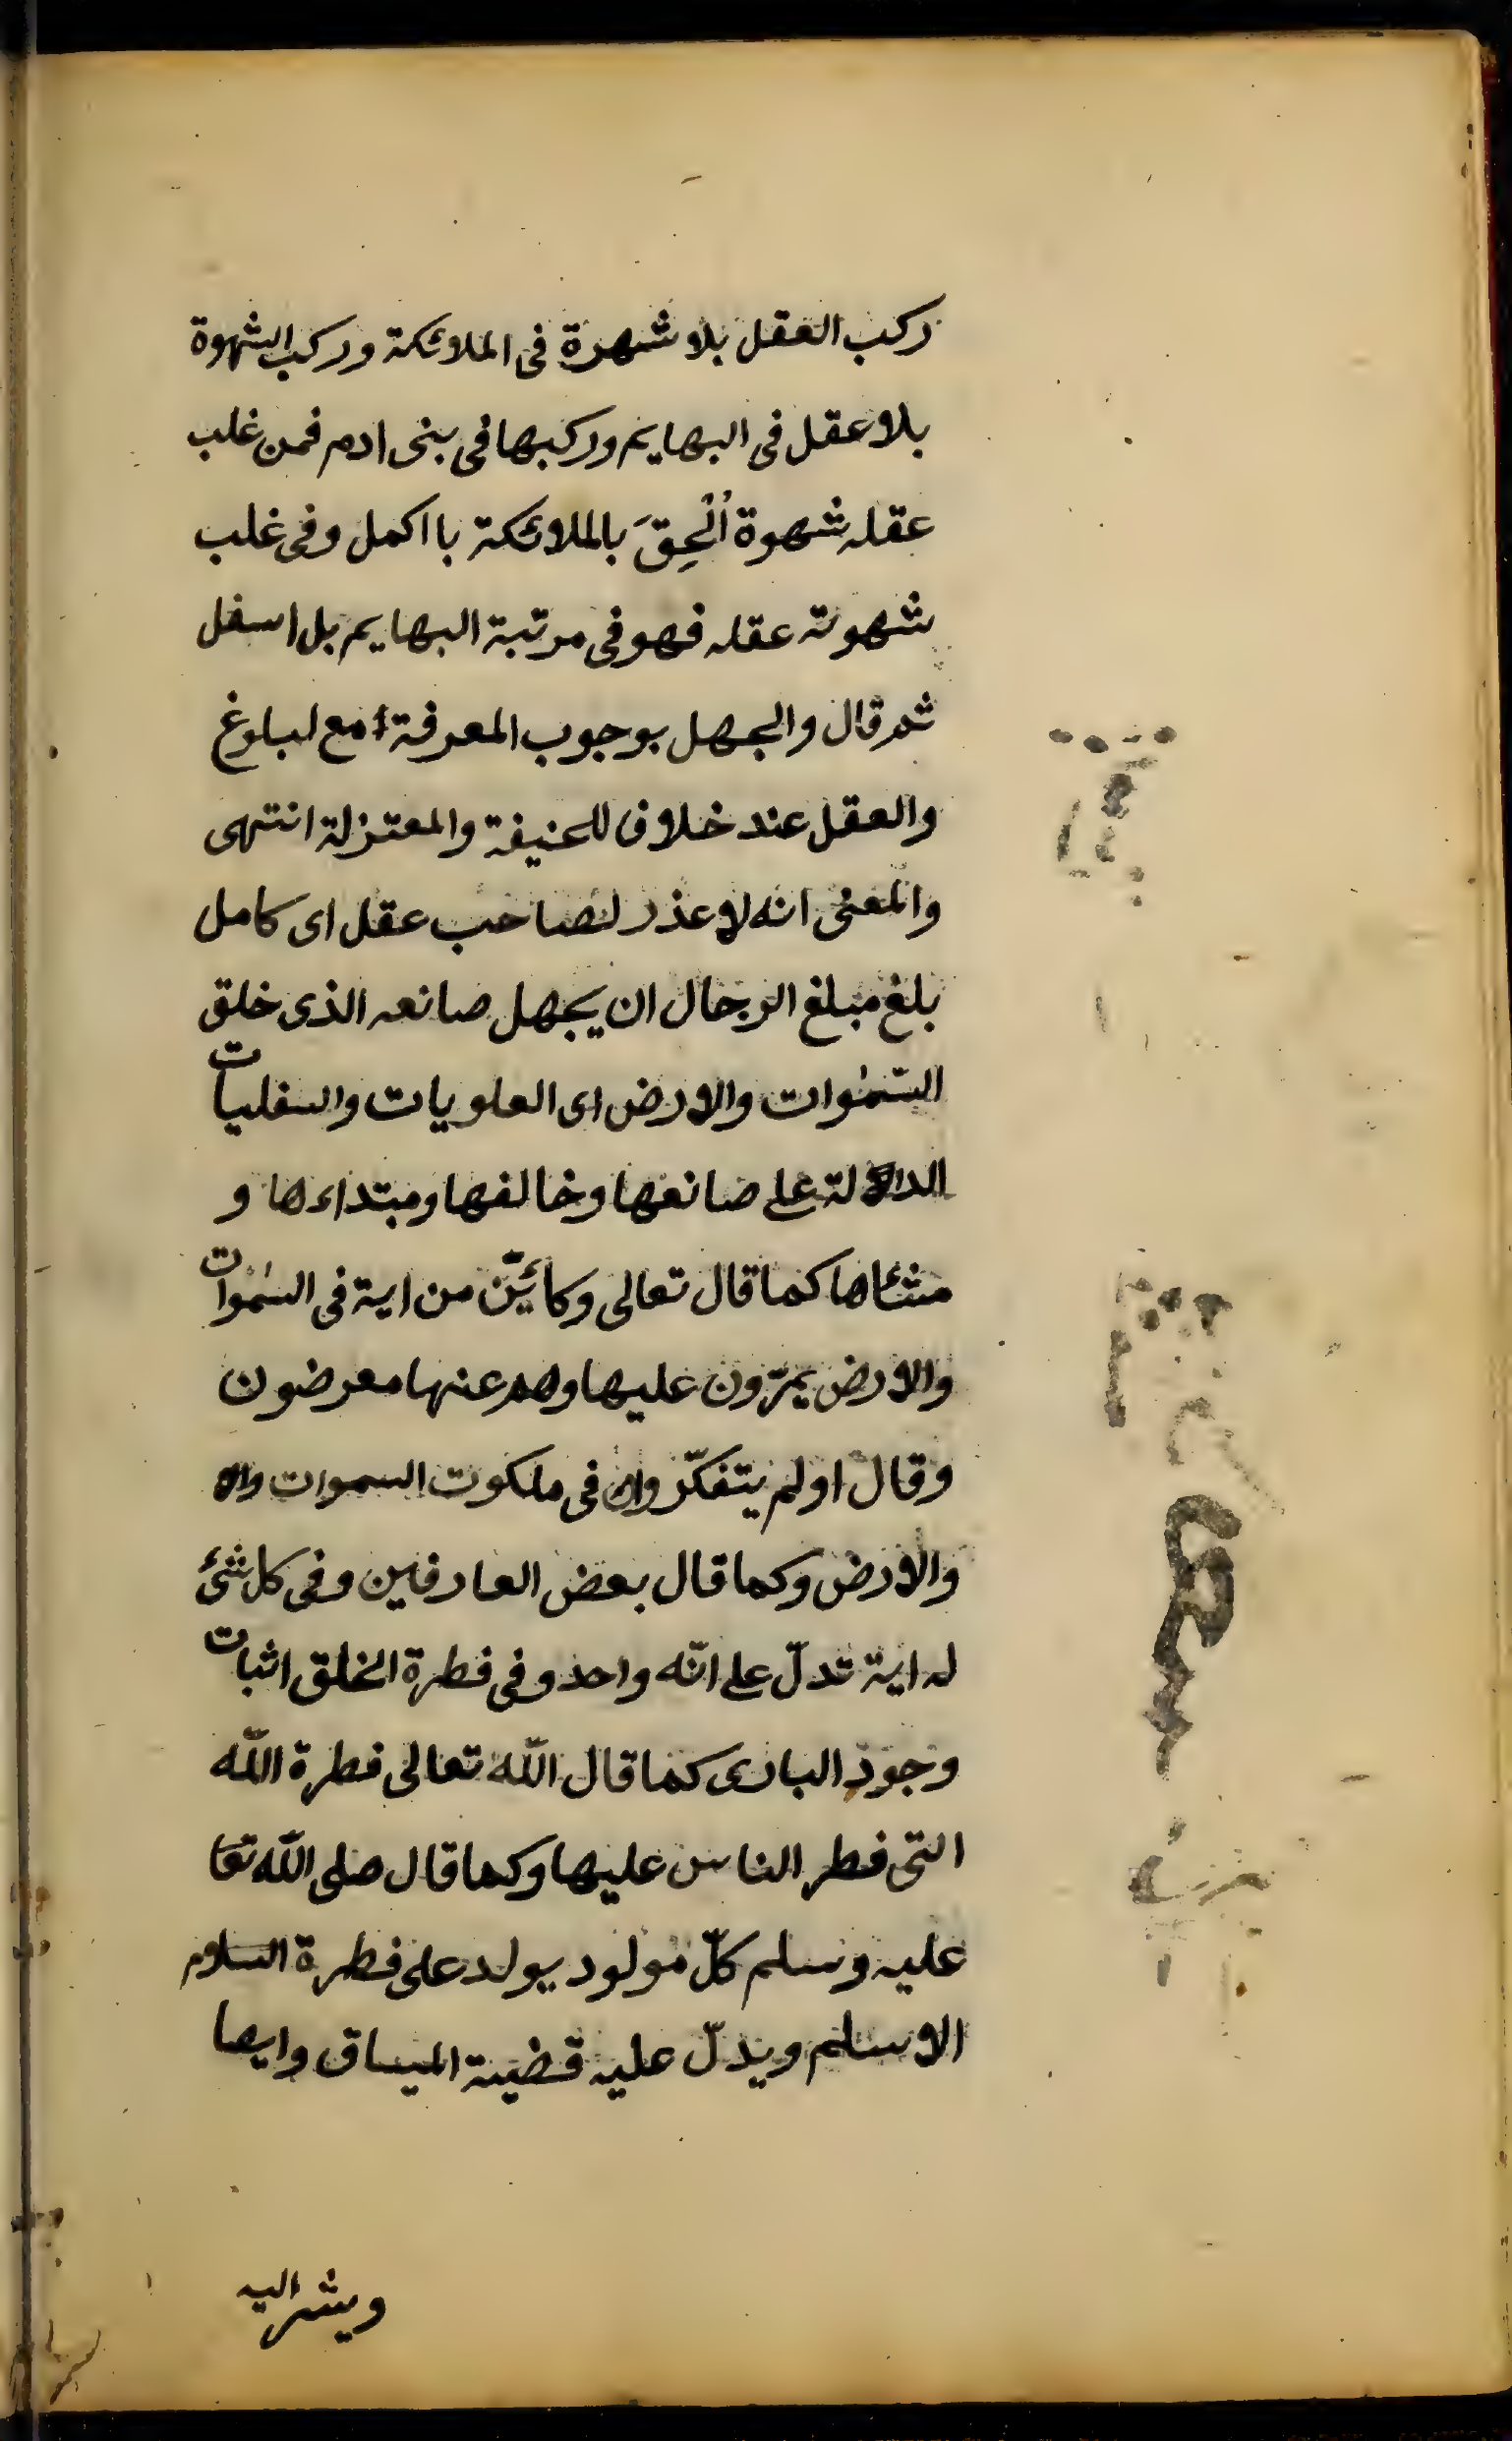 ركب العقل بلا شهرة فى الملائكة وركب الشهوة
بلا عقل فى البهايم وركبها فى بنى ادم فمن غلب
عقله شهوة اُلْحِقَ بالملائكة با اكمل وفى غلب
شهوته عقله فهو فى مرتبة البهايم بل اسفل
ثم قال والجهل بوجوب المعرفة مع لبلوغ
والعقل عند خلاف للحنيفة والمعتزلة انتهى
والمعنى انه لا عذر لصاحب عقل اى كامل
بلغ مبلغ الرجال ان يجهل صانعه الذى خلق
السّمٰوات والارض اى العلويات والسفليات
الدالة على صانعها وخالفها ومبتداءها و
منشاها كما قال تعالى وكأيّن من اية فى السمٰوات
والارض يمرّون عليها وهم عنها معرضون
وقال اولم يتفكّروا فى ملكوت السموات والا
والارض وكما قال بعض العارفين وفى كل شئ
له اية تدلّ على انّه واحد وفى فطرة الخلق اثبات
وجود البارى كما قال اللّه تعالى فطرة اللّه
التى فطر الناس عليها وكما قال صلى اللّه تعا
عليه وسلم كلّ مولود يولد على فطرة السلام
الاسلم ويدلّ عليه قضية الميساق وايصا
ويشر اليه